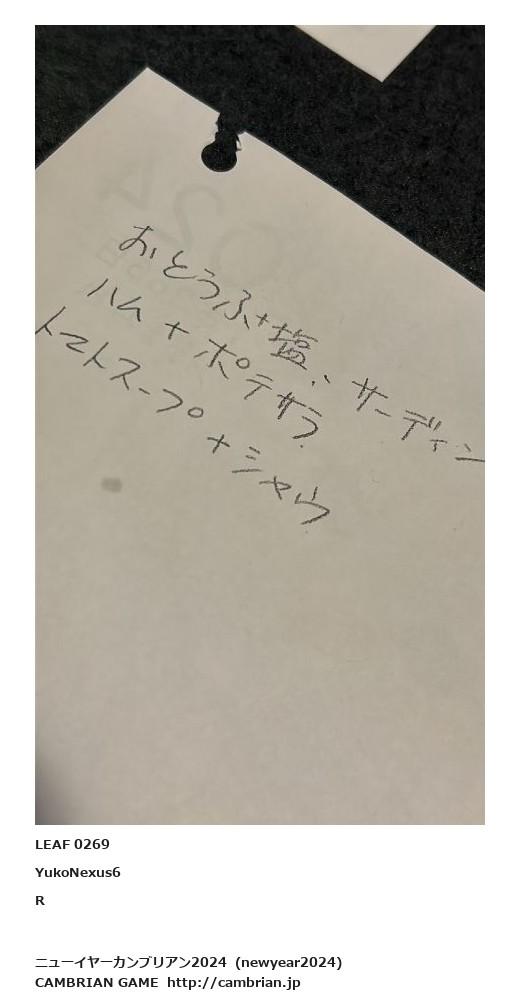 おとうふ+塩、サーディン
ハム + ポテサラ
トマトスープ + シャウ
LEAF 0269
YukoNexus6
R
ニューイヤーカンブリアン2024 (newyear2024)
CAMBRIAN GAME http://cambrian.jp